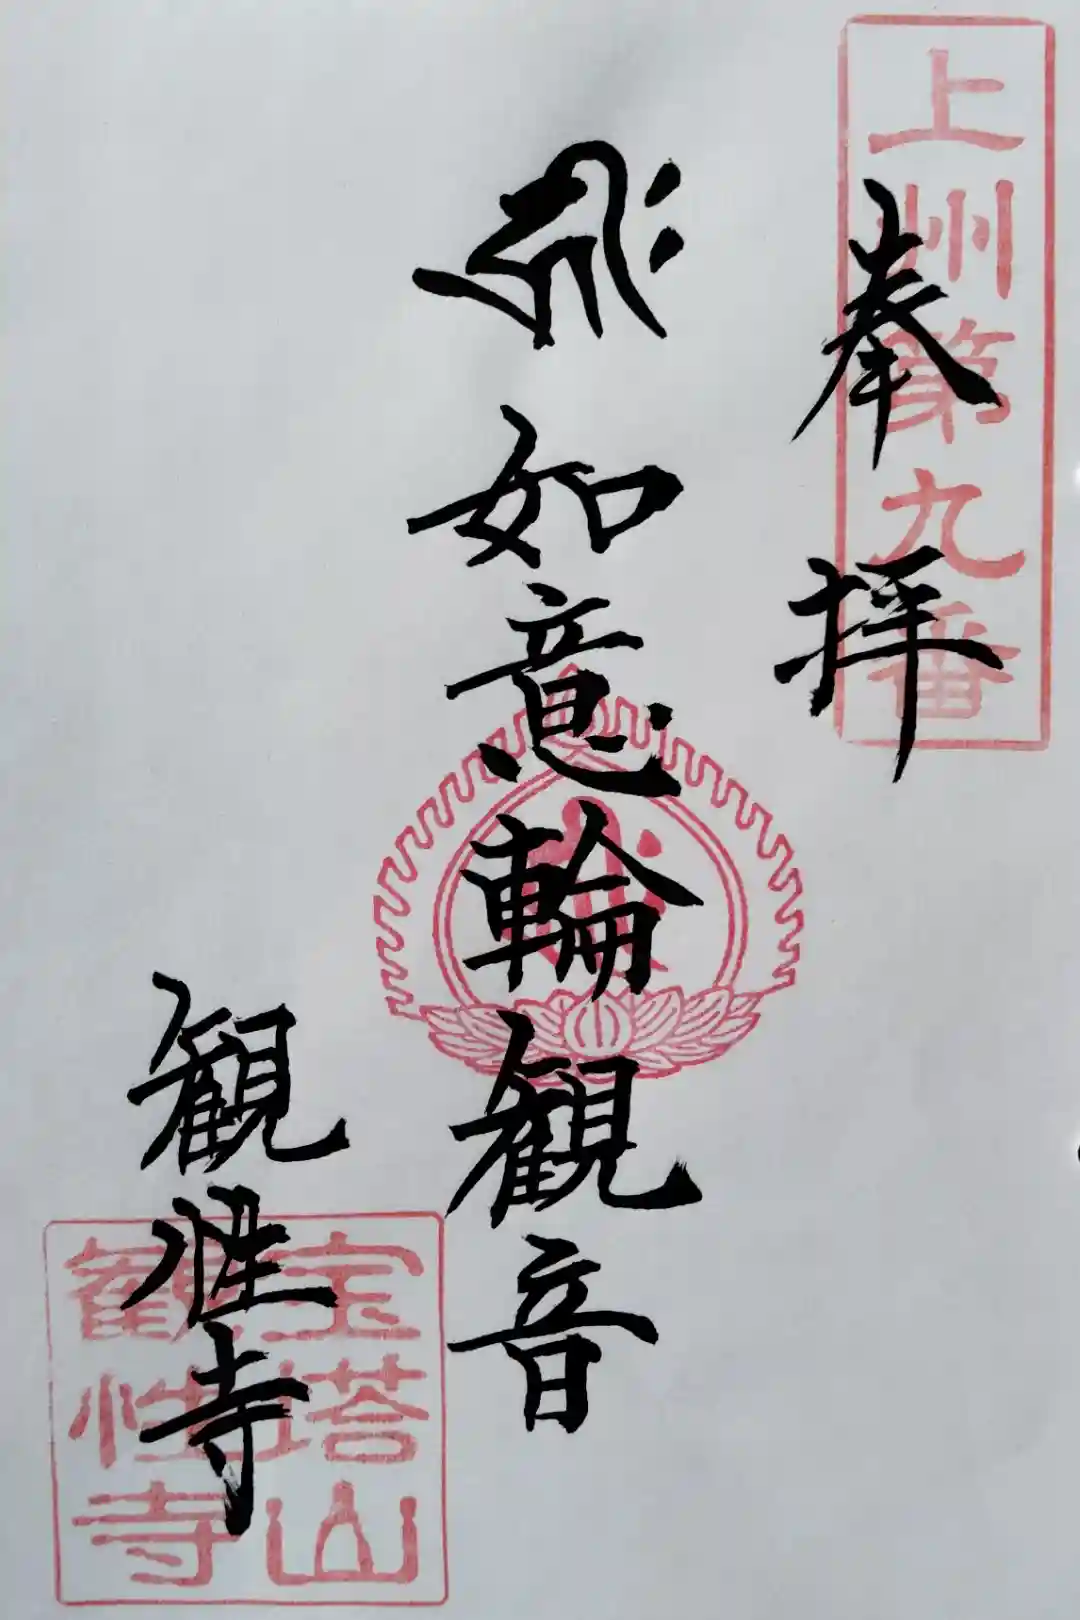 上州第九番
奉拝
𑖮𑖿𑖨𑖱𑖾
如意輪観音
宝塔山
観性寺
観性寺